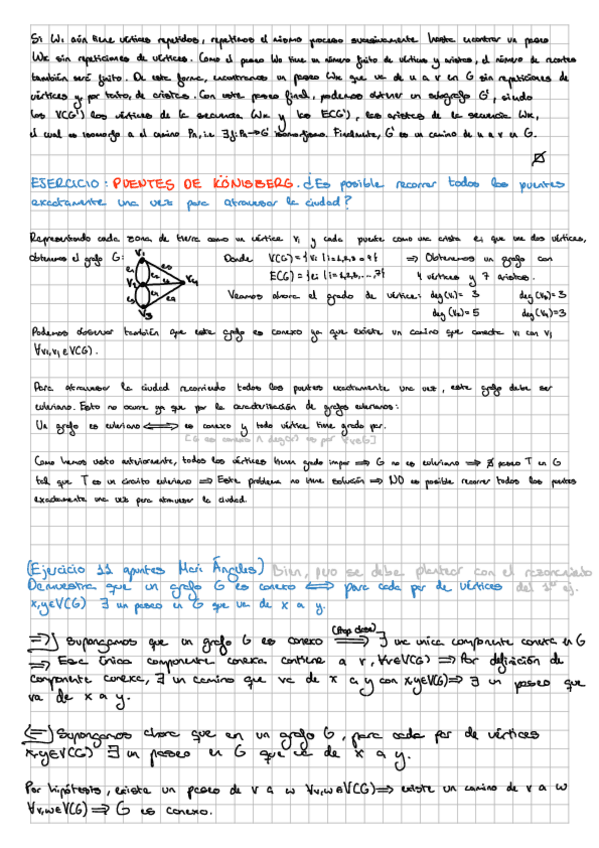 Si Wi aún tiene vértices repetidos, repetimos el mismo proceso sucesivamente hasta encontrar un paseo
Wk sin repeticiones de vértices. Como el paseo Wo tiene un número finito de vértices y aristas, el número de recortes
también será finito. De esta forma, encontramos un paseo Wk que va de u a v en G sin repeticiones de
vértices y por tanto, de aristas. Con este paseo final, podemos obtener un subgrafo G', siendo
los V(G') los vértices de la secuencia Wk y los E(G'), las aristas de la secuencia Wk,
el cual es isomorfo a el camino Pn, i.e ∃ f: Pn → G' isomorfismo. Finalmente, G' es un camino de u a v en G.
EJERCICIO: PUENTES DE KÖNISBERG. ¿Es posible recorrer todos los puentes
exactamente una vez para atravesar la ciudad?
Representando cada zona de tierra como un vértice vi y cada puente como una arista ei que une dos vértices,
obtenemos el grafo G:
V1
V2
V3
V4
Donde V(G) = {vi | i=1,2,3,4} ⇒ Obtenemos un grafo con
E(G) = {ei | i=1,2,3,...,7} 4 vértices y 7 aristas.
Veamos ahora el grado de vértice: deg(V1)= 3 deg(V3)=3
deg(V2)=5 deg(V4)=3
Podemos observar también que este grafo es conexo ya que existe un camino que conecta vi con vj
∀vi,vj ∈ V(G).
Para atravesar la ciudad recorriendo todos los puentes exactamente una vez, este grafo debe ser
euleriano. Esto no ocurre ya que por la caracterización de grafos eulerianos:
Un grafo es euleriano ⟺ es conexo y todo vértice tiene grado par.
[G es conexo ∧ deg(v) es par ∀v∈G]
Como hemos visto anteriormente, todos los vértices tienen grado impar ⇒ G no es euleriano ⇒ ∄ paseo T en G
tal que T es un circuito euleriano ⇒ Este problema no tiene solución ⇒ NO es posible recorrer todos los puentes
exactamente una vez para atravesar la ciudad.
(Ejercicio 11 apuntes Mari Ángeles) Bien, pero se debe plantear con el razonamiento
Demuestra que un grafo G es conexo ⟺ para cada par de vértices del 1er ej.
x,y∈V(G) ∃ un paseo en G que va de x a y.
⇒) Supongamos que un grafo G es conexo ⇒ (Prop clase) ∃ una única componente conexa en G
⇒ Esa única componente conexa contiene a v, ∀v∈V(G) ⇒ Por definición de
componente conexa, ∃ un camino que va de x a y con x,y∈V(G) ⇒ ∃ un paseo que
va de x a y.
⇐) Supongamos ahora que en un grafo G, para cada par de vértices
x,y∈V(G) ∃ un paseo en G que va de x a y.
Por hipótesis, exista un paseo de v a w ∀v,w∈V(G) ⇒ existe un camino de v a w
∀v,w∈V(G) ⇒ G es conexo.